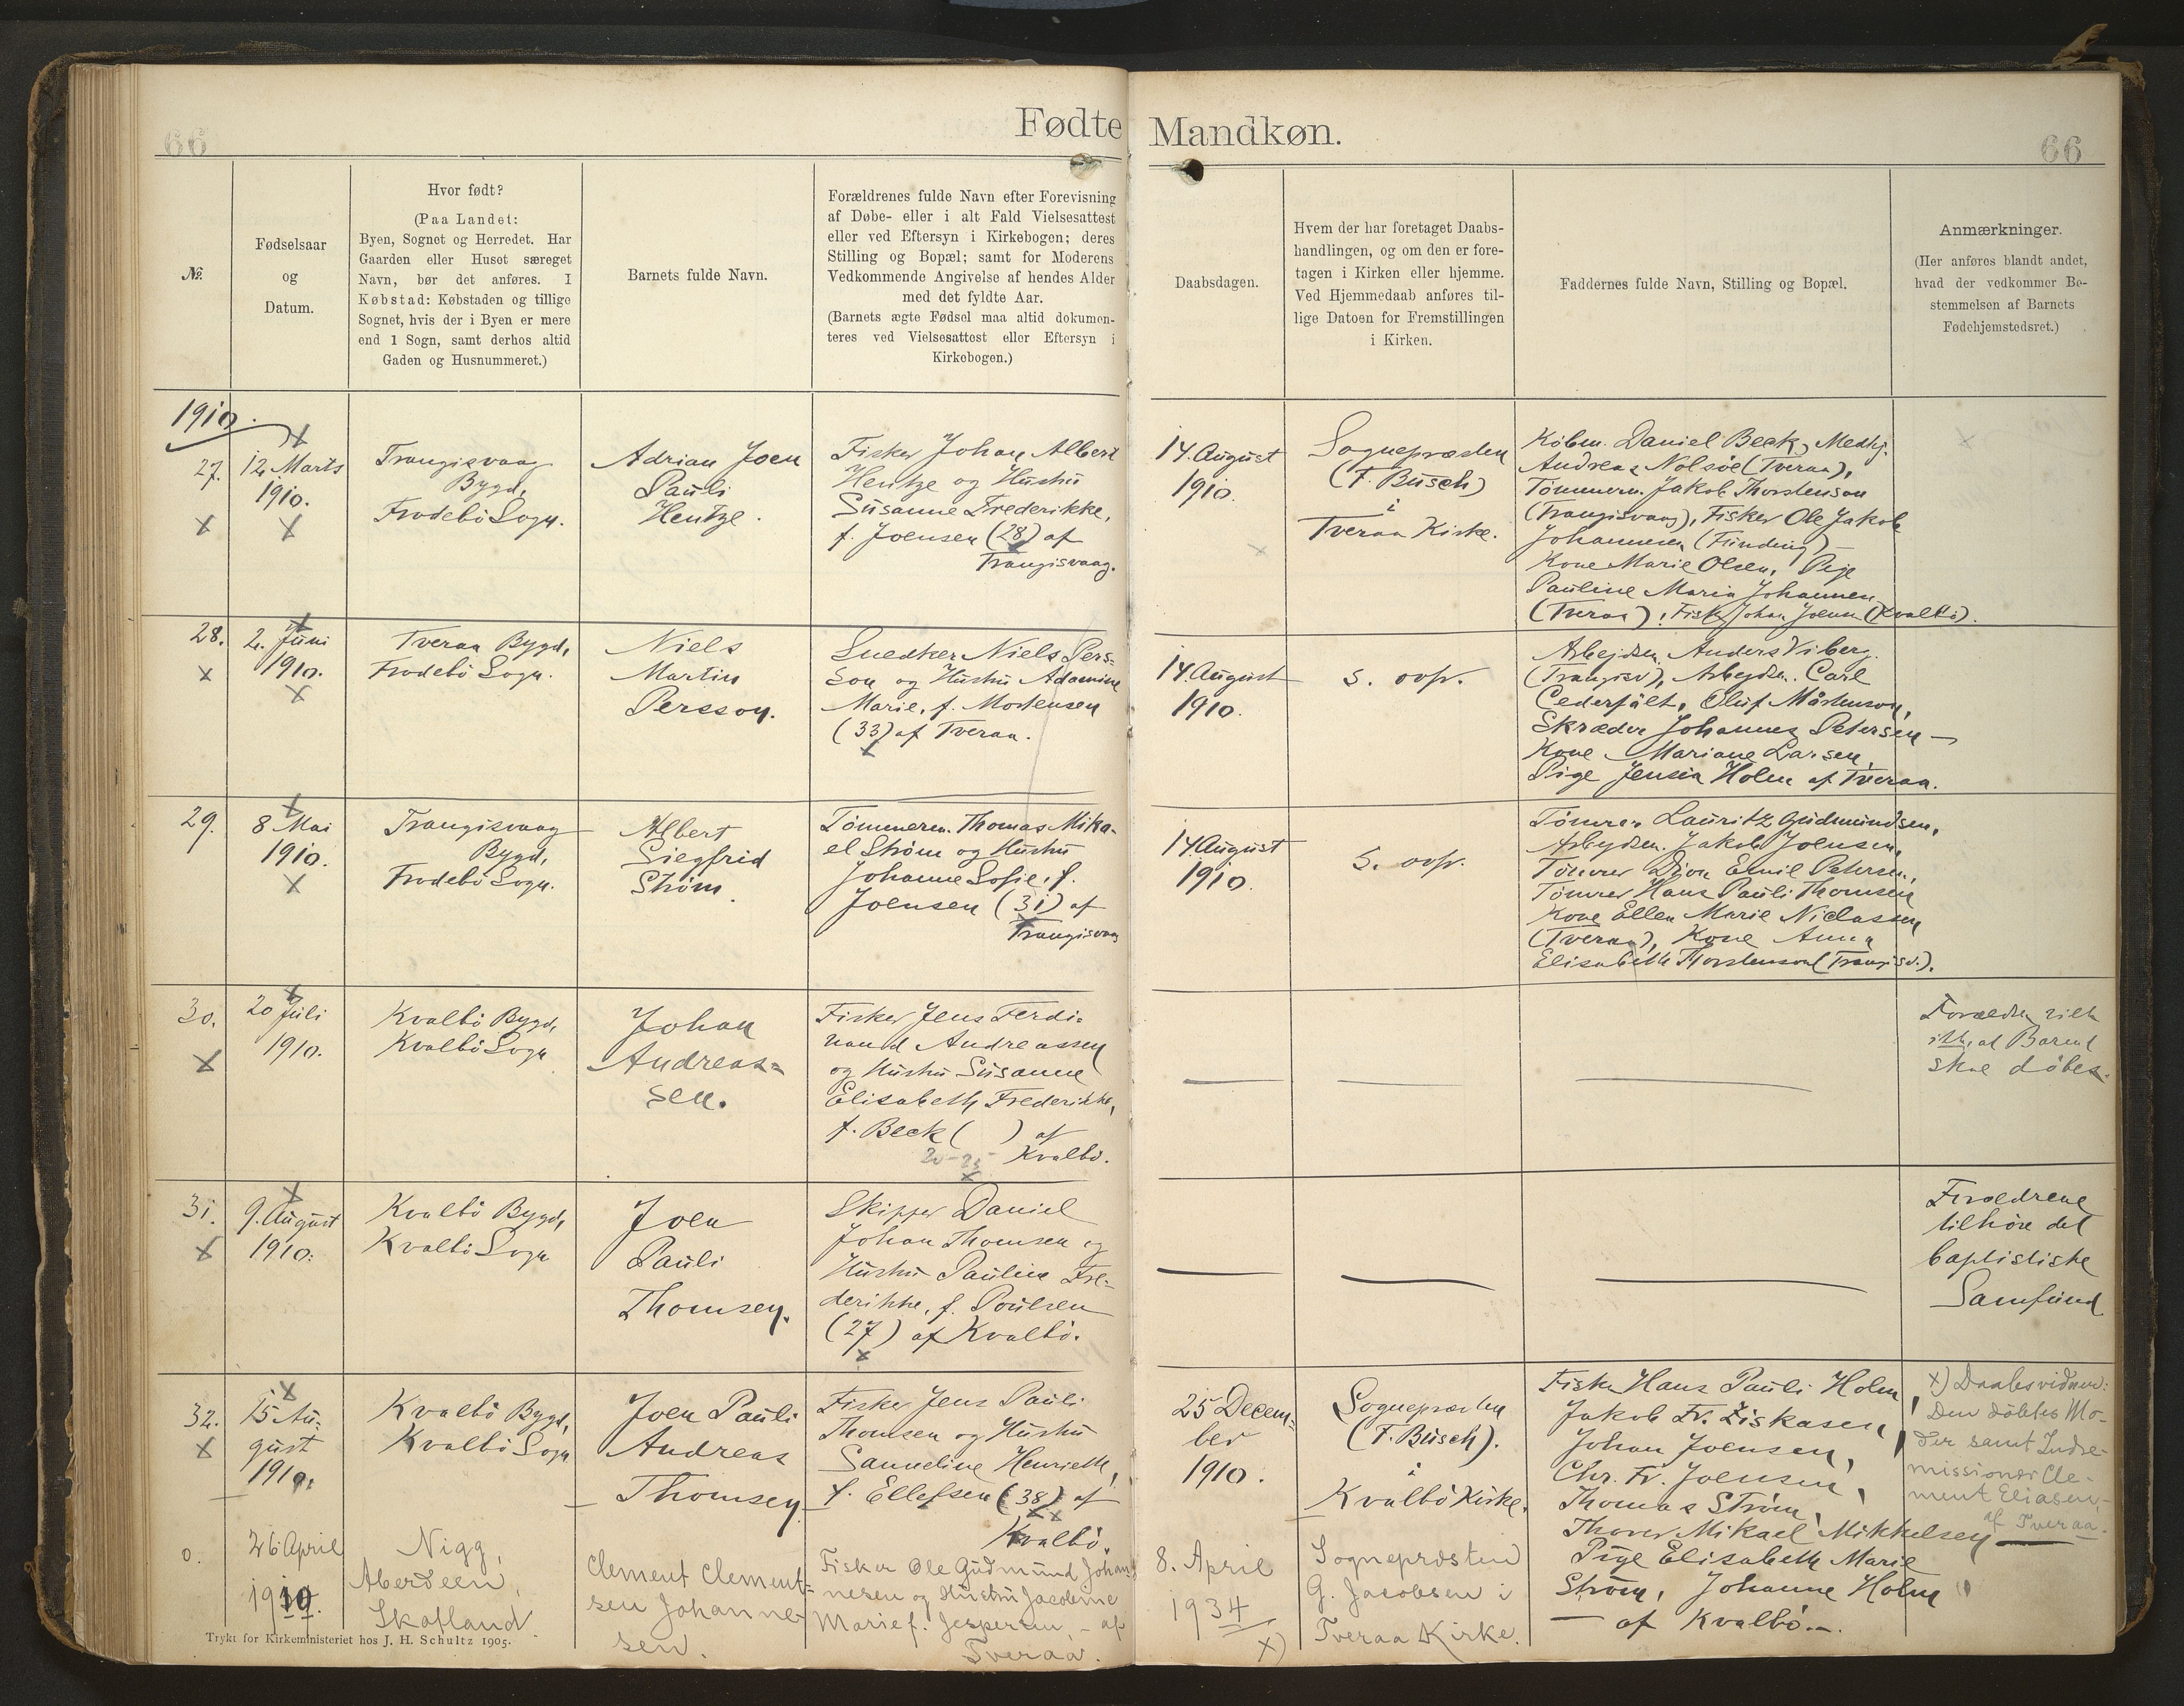 66
Fødte Mandkøn.
66
№.
Fødselsaar
og
Datum.
Hvor født?
(Paa Landet:
Byen, Sognet og Herredet. Har
Gaarden eller Huset særeget
Navn, bør det anføres. I
Købstad: Købstaden og tillige
Sognet, hvis der i Byen er mere
end 1 Sogn, samt derhos altid
Gaden og Husnummeret.)
Barnets fulde Navn.
Forældrenes fulde Navn efter Forevisning
af Døbe- eller i alt Fald Vielsesattest
eller ved Eftersyn i Kirkebogen; deres
Stilling og Bopæl; samt for Moderens
Vedkommende Angivelse af hendes Alder
med det fyldte Aar.
(Barnets ægte Fødsel maa altid dokumen-
teres ved Vielsesattest eller Eftersyn i
Kirkebogen.)
Daabsdagen.
Hvem der har foretaget Daabs-
handlingen, og om den er fore-
tagen i Kirken eller hjemme.
Ved Hjemmedaab anføres til-
lige Datoen for Fremstillingen
i Kirken.
Faddernes fulde Navn, Stilling og Bopæl.
Anmærkninger.
(Her anføres blandt andet,
hvad der vedkommer Be-
stemmelsen af Barnets
Fødehjemstedsret.)
1910.
27.
12. Marts
1910.
Trangisvaag
Bygd,
Frodebö Sogn.
Adrian Joen
Pauli
Hentze.
Fisker Johan Albert
Hentze og Hustru
Susanne Frederikke,
f. Joensen (28) af
Trangisvaag.
14. August
1910.
Sognepræsten
(F. Busch)
i
Tveraa Kirke.
Købm. Daniel Beck, Medhj.
Andreas Nolsøe (Tveraa),
Tömmerm. Jakob Thorstenson
(Trangisvaag), Fisker Ole Jakob
Johannesen (Funding) —
Kone Marie Olsen, Pige
Pauline Maria Johannesen
(Tveraa), Fisk. Johan Joensen (Kvalbö).
28.
2. Juni
1910.
Tveraa Bygd,
Frodebö Sogn.
Niels
Martin
Persson.
Snedker Niels Pers-
son og Hustru Adamine
Marie, f. Mortensen
(33) af Tveraa.
14. August
1910.
s. ovfr.
Arbejdsm. Anders Viberg
(Trangisv), Arbejdsm. Carl
Cederfält, Oluf Mårtenson,
Skræder Johannes Petersen —
Kone Mariane Larsen,
Pige Jensia Holm af Tveraa.
29.
8 Mai
1910.
Trangisvaag
Bygd,
Frodebö Sogn.
Albert
Siegfrid
Ström.
Tömmerm. Thomas Mika-
el Ström og Hustru
Johanne Sofie, f.
Joensen (31) af
Trangisvaag
14. August
1910.
s. ovfr.
Tömrer Lauritz Gudmundsen,
Arbejdsm. Jakob Joensen,
Tömrer Emil Petersen,
Tömrer Hans Pauli Thomsen
Kone Ellen Marie Niclassen
(Tveraa), Kone Anna
Elisabeth Thorstenson (Trangisv.).
30.
20 Juli
1910.
Kvalbö Bygd,
Kvalbö Sogn
Johan
Andreas-
sen.
Fisker Jens Ferdi-
nand Andreassen
og Hustru Susanne
Elisabeth Frederikke,
f. Beck ( ) af
20-25 Kvalbö.
Forældrene vilde
ikke, at Barnet
skal döbes.
31.
9. August
1910.
Kvalbö Bygd,
Kvalbö Sogn
Joen
Pauli
Thomsen.
Skipper Daniel
Johan Thomsen og
Hustru Pauline Fre-
derikke, f. Poulsen
(27) af Kvalbö.
Forældrene
tilhöre det
baptistiske
Samfund
32.
15 Au-
gust
1910.
Kvalbö Bygd,
Kvalbö Sogn
Joen Pauli
Andreas
Thomsen
Fisker Jens Pauli
Thomsen og Hustru
Sanneline Henriette,
f. Ellefsen (38) af
Kvalbö.
25 Decem-
ber
1910.
Sognepræsten
(F. Busch).
i
Kvalbö Kirke.
Fisker Hans Pauli Holm,
Jakob Fr. Ziskasen,
Johan Joensen,
Chr. Fr. Joensen,
Thomas Ström,
Mikael Mikkelsen —
Pige Elisabeth Marie
Ström, Johanne Holm
— af Kvalbö. —
x) Daabsvidner:
Den döbtes Mo-
der samt Indre-
missionær Cle-
ment Eliasen,
af Tveraa.
0.
26 April
1910.
Nigg,
Aberdeen,
Skotland.
Clement Clement-
sen Johanne-
sen.
Fisker Ole Gudmund Johan-
nesen og Hustru Jacobine
Marie f. Jespersen, - af
Tveraa.
8. April
1934
x)
Sognepræsten
G. Jacobsen i
Tveraa Kirke.
Trykt for Kirkeministeriet hos J. H. Schultz 1905.